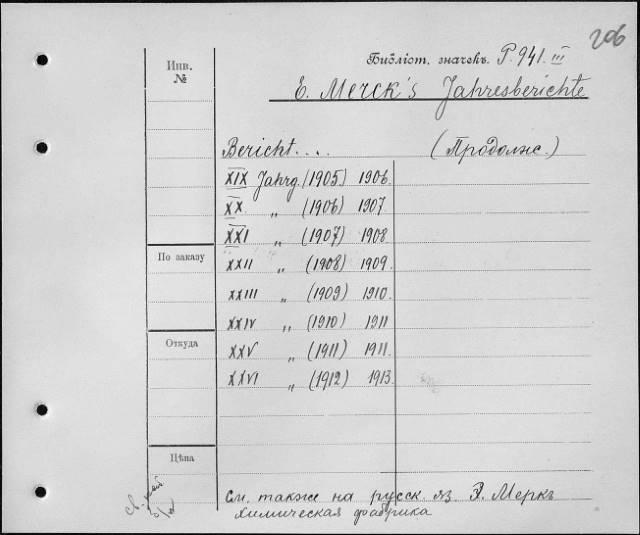 206
Библіот. значекъ. P. 941. III
Инв.
№
E. Merck's Jahresberichte
Bericht.... (Продолж.)
XIX Jahrg. (1905) 1906.
XX „ (1906) 1907.
XXI „ (1907) 1908.
По заказу
XXII „ (1908) 1909.
XXIII „ (1909) 1910.
XXIV „ (1910) 1911
Откуда
XXV „ (1911) 1911.
XXVI „ (1912) 1913.
Цѣна
См. также на русск. яз. Э. Меркъ
химическая фабрика